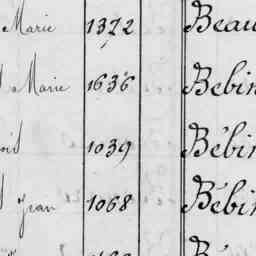 Marie 1372 Beau
Marie 1636 Bebin
1039 Bébin
Jean 1068 Bébin